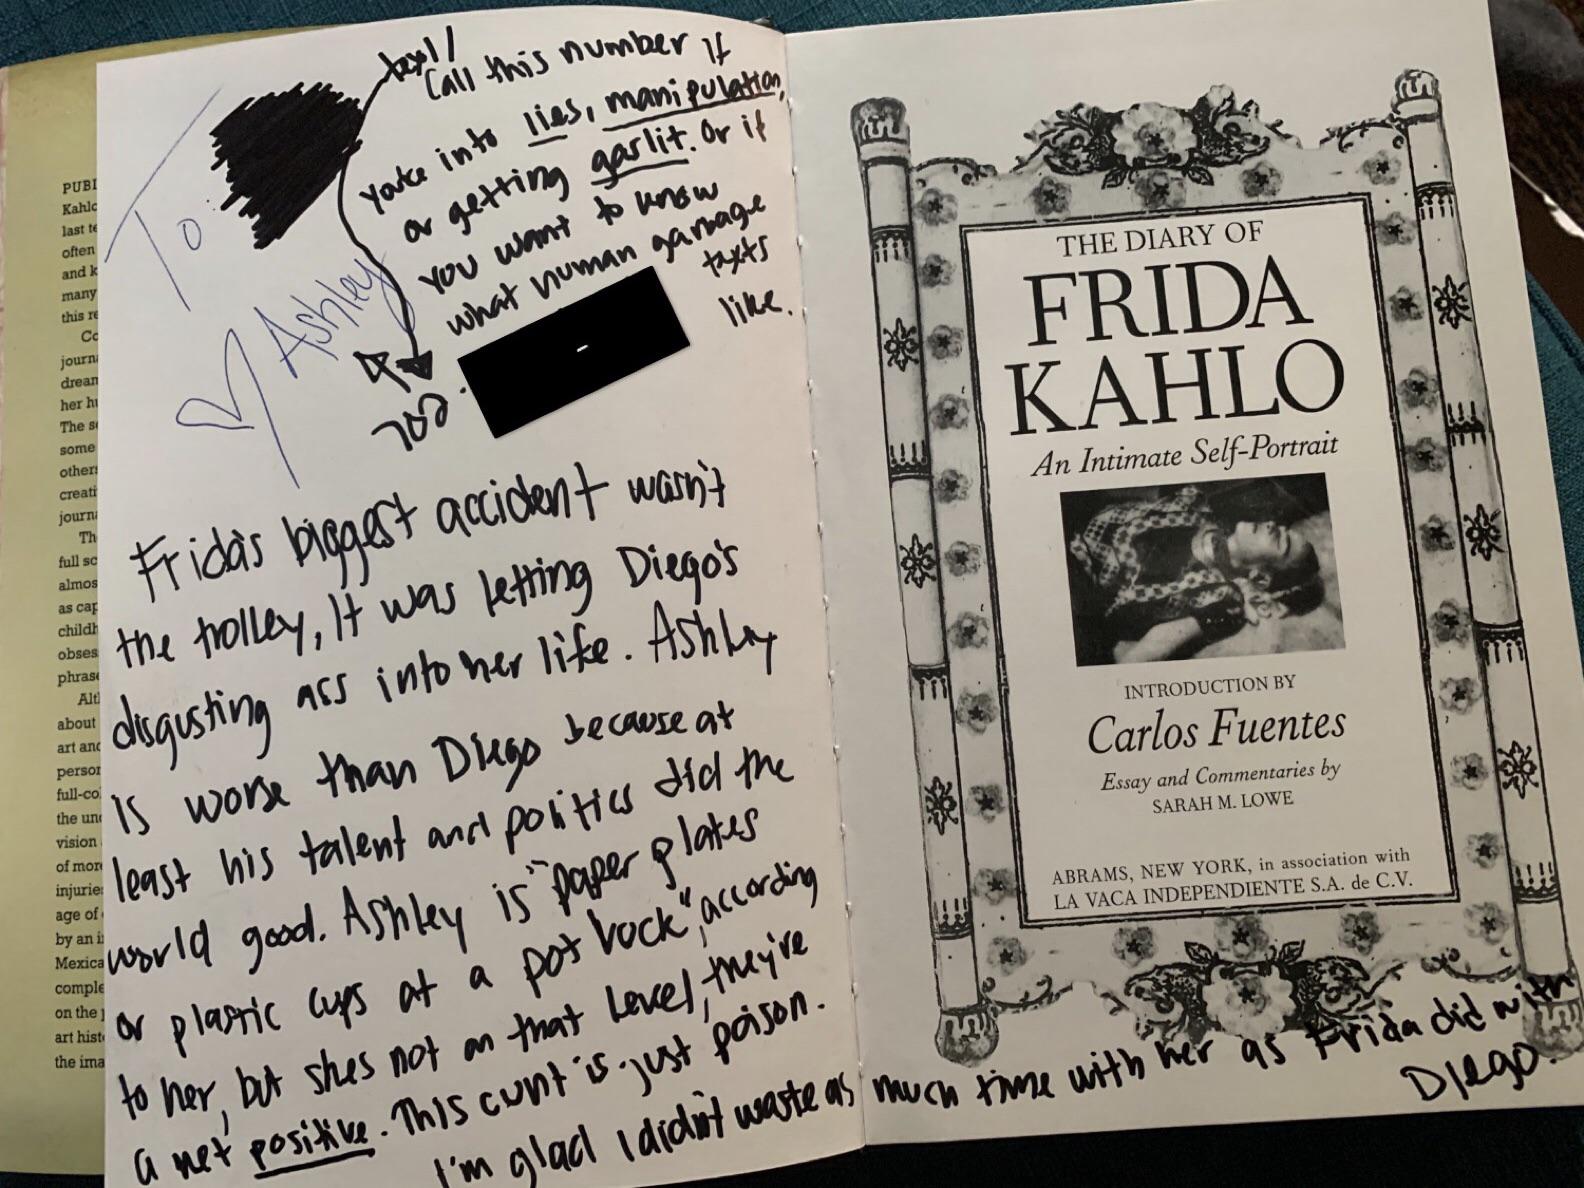 To
♡ Ashley
text/
Call this number if
you're into lies, manipulation,
or getting gaslit. Or if
you want to know
what human garbage
texts
like.
702.
-
Frida's biggest accident wasn't
the trolley, It was letting Diego's
disgusting ass into her life. Ashley
is worse than Diego because at
least his talent and politics did the
world good. Ashley is "paper plates
or plastic cups at a pot luck", according
to her, but shes not on that level, they're
a net positive. This cunt is just poison.
I'm glad I didn't waste as much time with her as Frida did with
Diego.
PUBL
Kahlo
last te
often
and k
many
this re
Co
journa
dream
her hu
The se
some
others
creati
journa
Th
full sc
almos
as cap
childh
obses
phrase
Alt
about
art and
person
full-co
the un
vision
of more
injurie
age of
by an i
Mexica
comple
on the
art hist
the ima
THE DIARY OF
FRIDA
KAHLO
An Intimate Self-Portrait
INTRODUCTION BY
Carlos Fuentes
Essay and Commentaries by
SARAH M. LOWE
ABRAMS, NEW YORK, in association with
LA VACA INDEPENDIENTE S.A. de C.V.